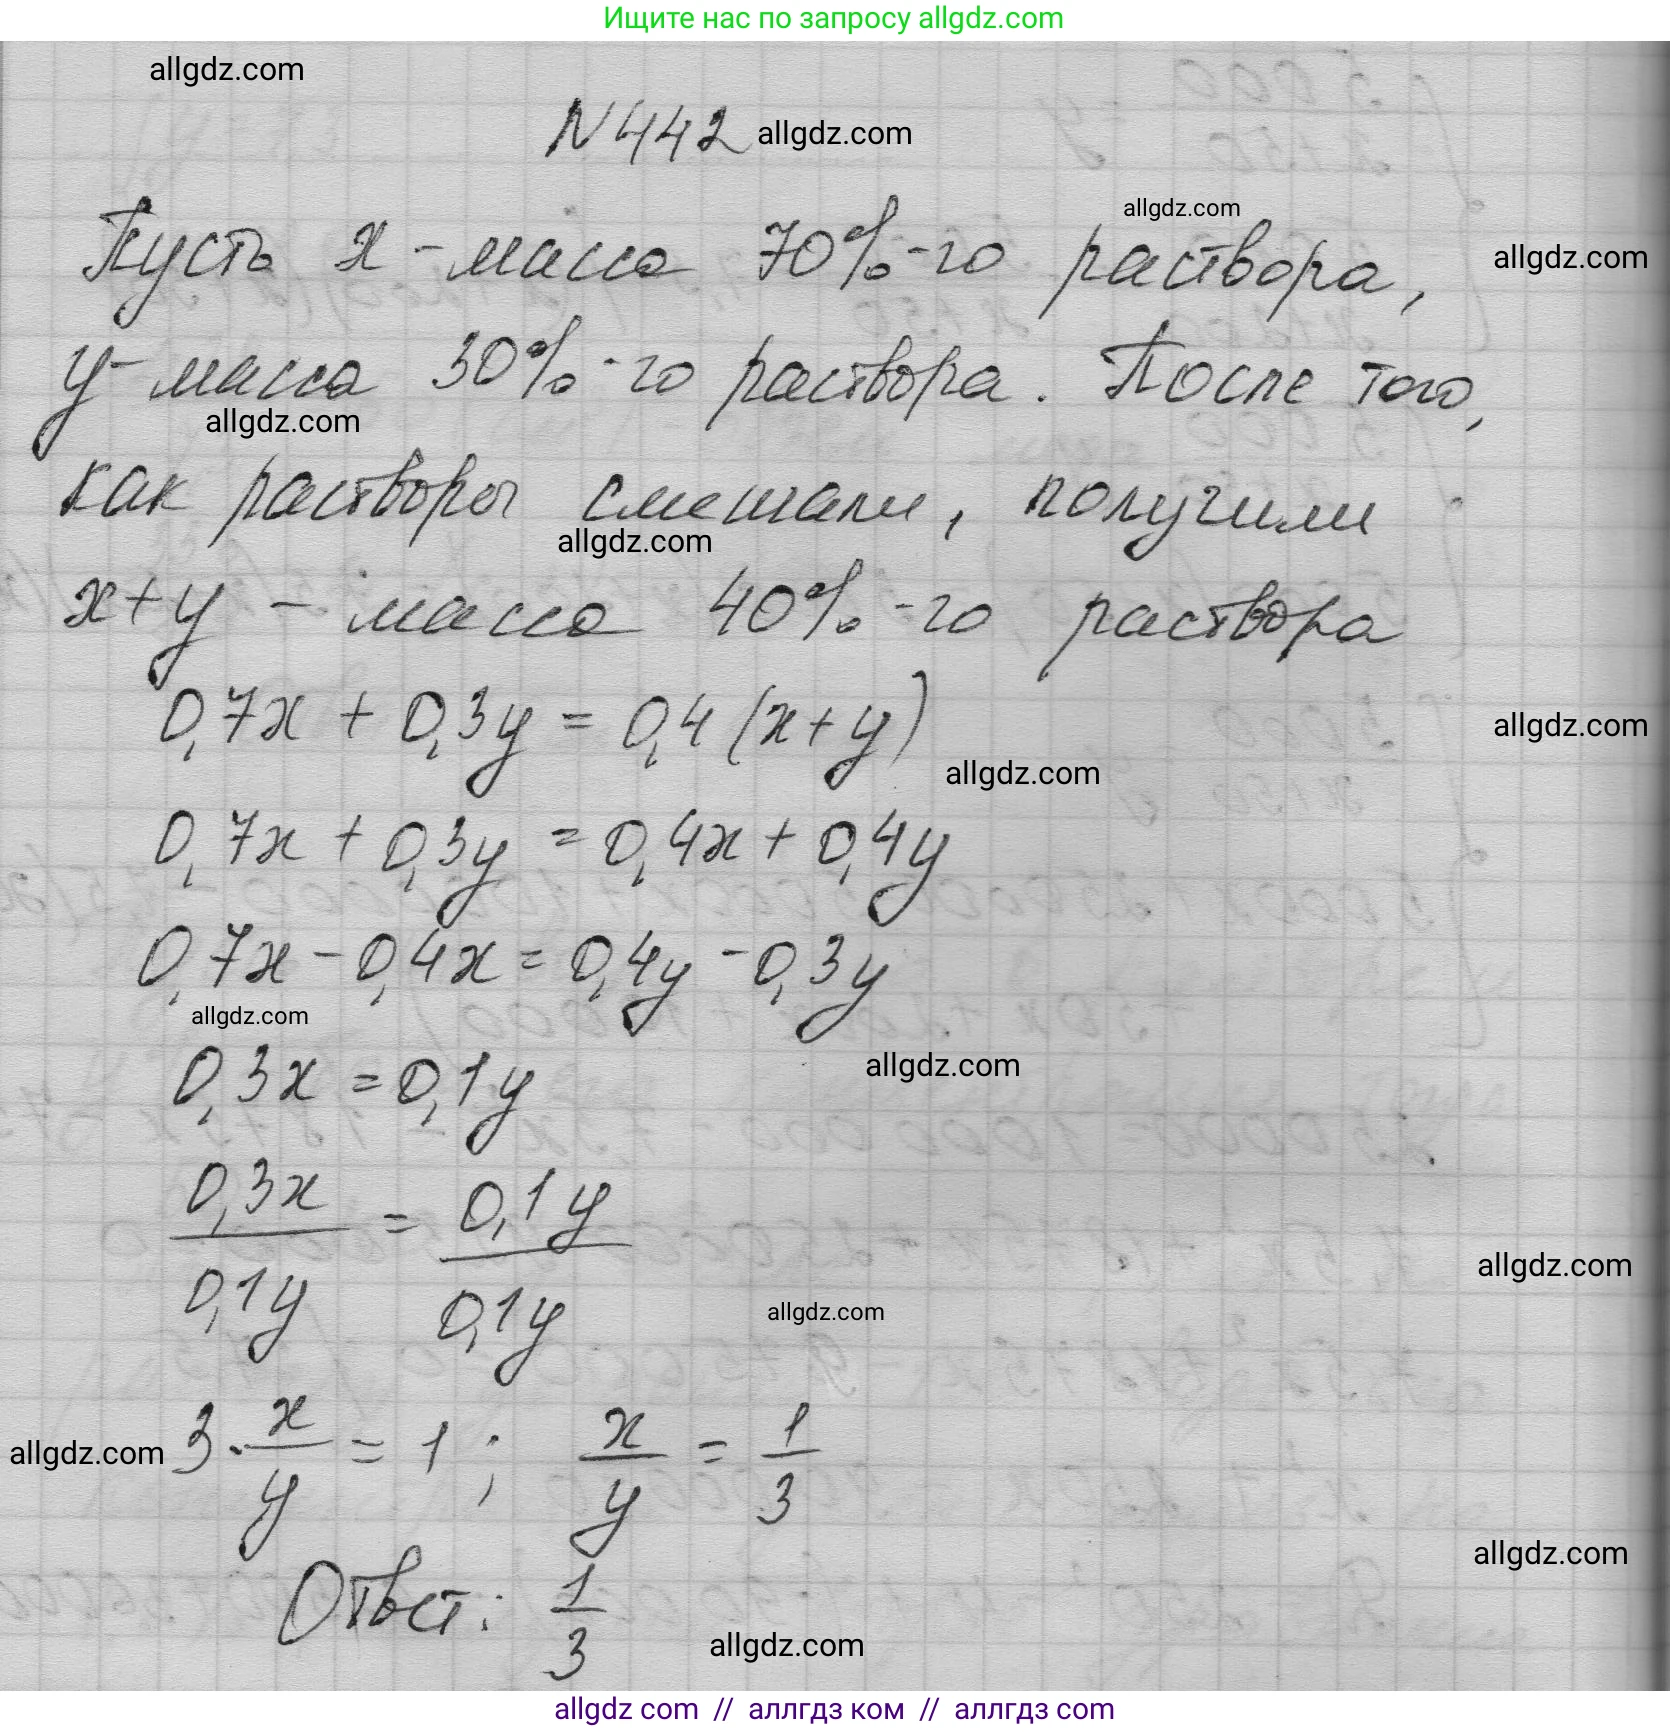 Ищите нас по запросу allgdz.com
allgdz.com
N442 allgdz.com
allgdz.com
Пусть x - масса 70%-го раствора, allgdz.com
y - масса 30%-го раствора. После того,
allgdz.com
как растворы смешали, получили
allgdz.com
x+y - масса 40%-го раствора
0,7x + 0,3y = 0,4(x+y) allgdz.com
allgdz.com
0,7x + 0,3y = 0,4x + 0,4y
0,7x - 0,4x = 0,4y - 0,3y
allgdz.com
allgdz.com
0,3x = 0,1y
0,3x/0,1y = 0,1y/0,1y allgdz.com
allgdz.com
allgdz.com 3·x/y = 1; x/y = 1/3
allgdz.com
Ответ: 1/3 allgdz.com
allgdz.com // аллгдз ком // аллгдз.com